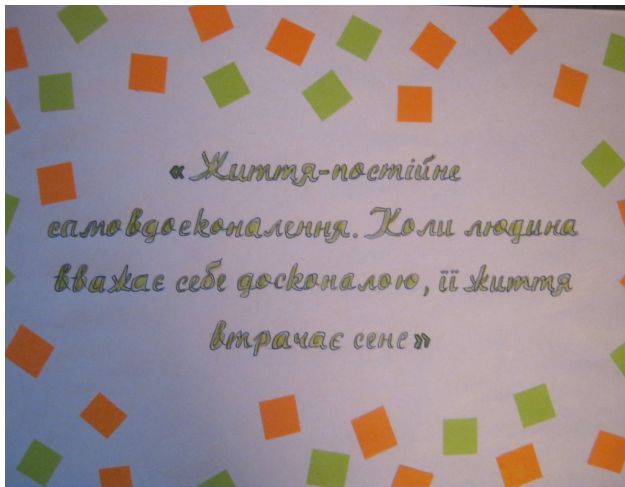 « Життя-постійне
самовдосконалення. Коли людина
вважає себе досконалою, її життя
втрачає сенс»